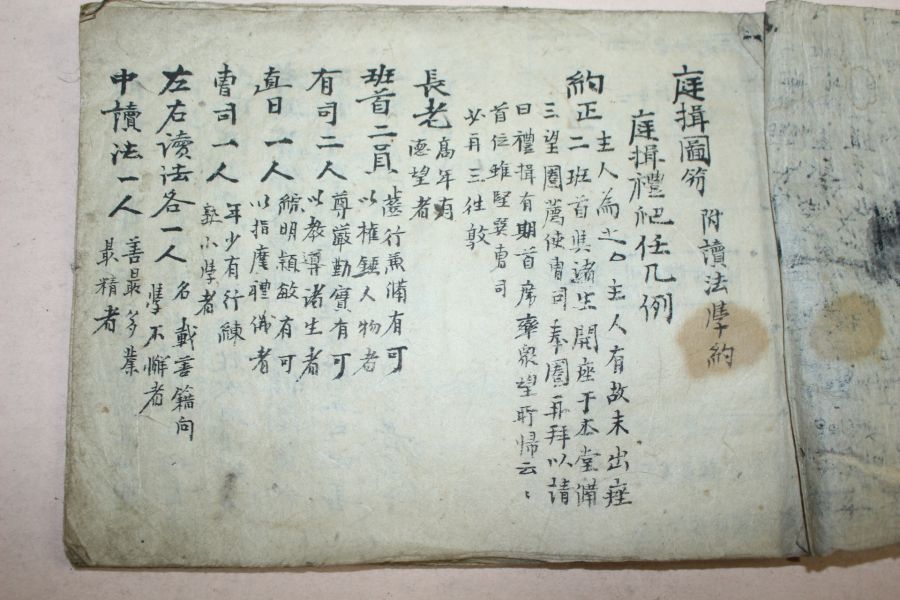 庭揖圖笏 附讀法學約
庭揖禮爬任凡例
約正二 主人為之○主人有故未出座
班首與諸生開座于本堂備
三望圈薦使曺司奉圈再拜以請
曰禮揖有期首席率衆望所歸云云
首位雖堅辭曺司
必再三往敦
長老 高年有
德望者
班首二員 文行兼備有可
以權鎭人物者
有司二人 尊嚴勤實有可
以敎導諸生者
直日一人 觧明穎敏有可
以指度禮儀者
曺司一人 年少有行練
熟小學者
左右讀法各一人 名載善籍向
學不懈者
中讀法一人 善最多業
最精者